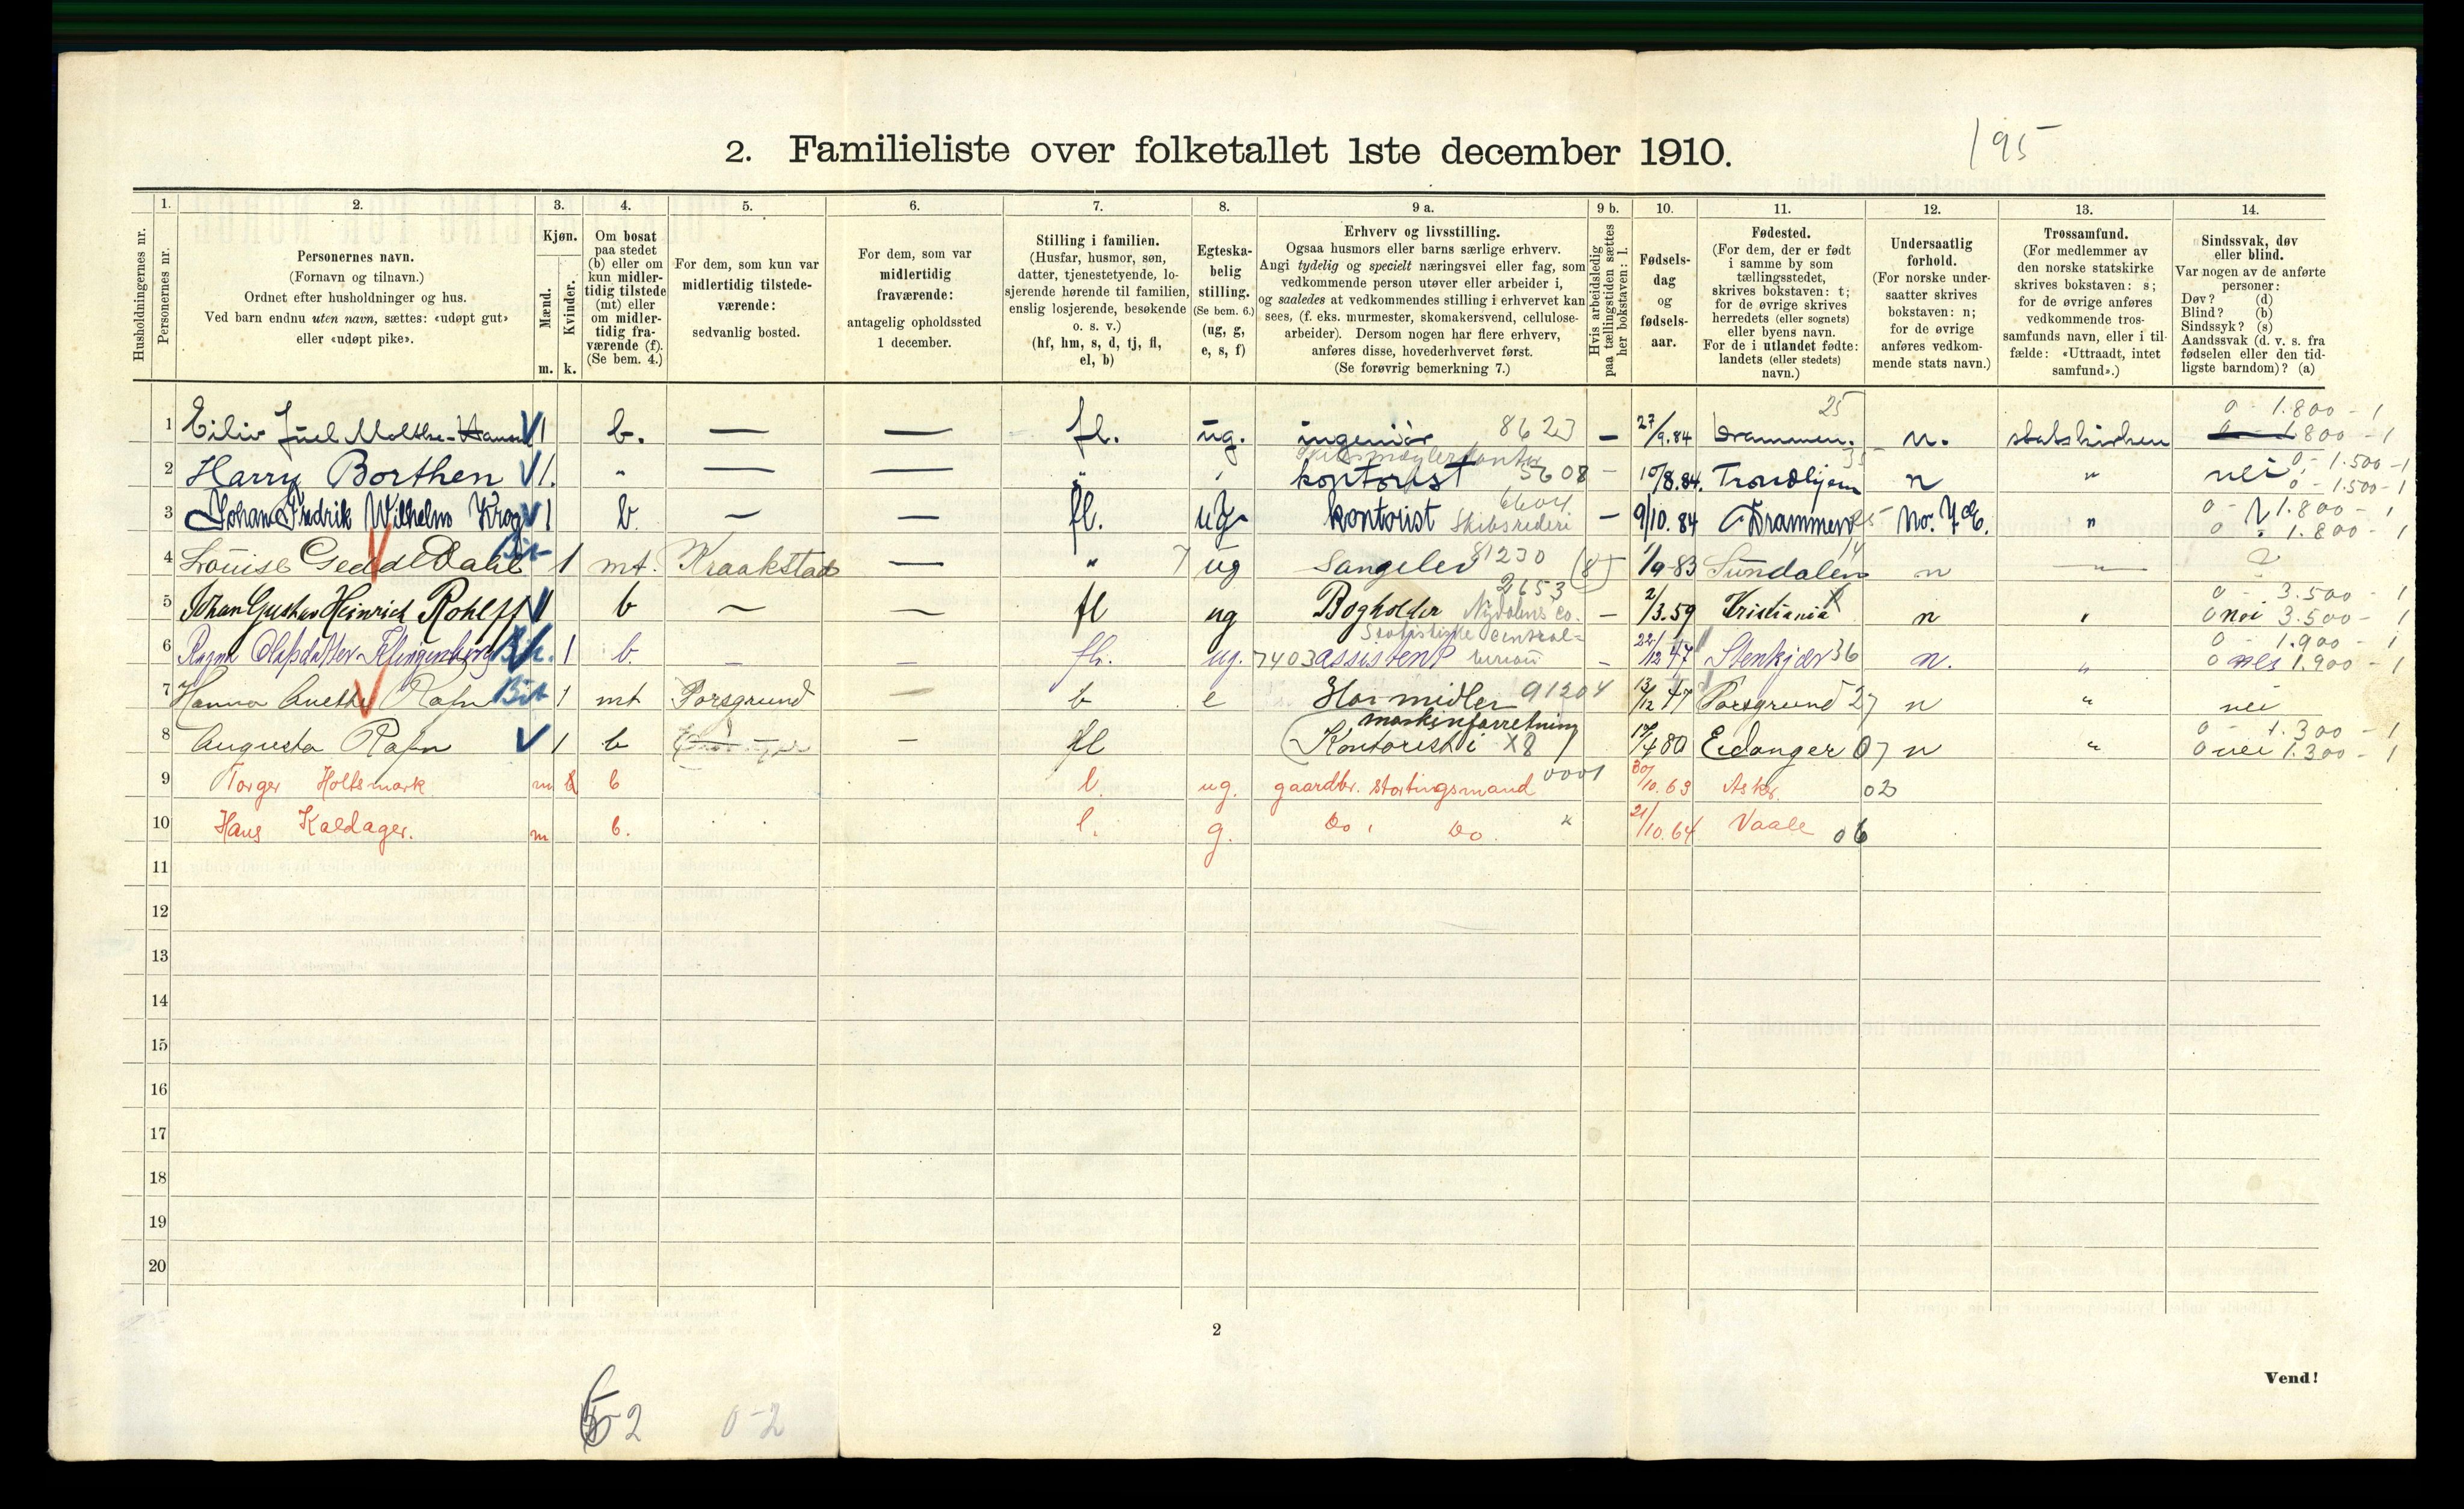 195
2. Familieliste over folketallet 1ste december 1910.
Husholdningernes nr.
1. Personernes nr.
2. Personernes navn.
(Fornavn og tilnavn.)
Ordnet efter husholdninger og hus.
Ved barn endnu uten navn, sættes: «udøpt gut»
eller «udøpt pike».
3. Kjøn.
Mænd. Kvinder.
m. k.
4. Om bosat
paa stedet
(b) eller om
kun midler-
tidig tilstede
(mt) eller
om midler-
tidig fra-
værende (f).
(Se bem. 4.)
5. For dem, som kun var
midlertidig tilstede-
værende:
sedvanlig bosted.
6. For dem, som var
midlertidig
fraværende:
antagelig opholdssted
1 december.
7. Stilling i familien.
(Husfar, husmor, søn,
datter, tjenestetyende, lo-
sjerende hørende til familien,
enslig losjerende, besøkende
o. s. v.)
(hf, hm, s, d, tj, fl,
el, b)
8. Egteska-
belig
stilling.
(Se bem. 6.)
(ug, g,
e, s, f)
9 a. Erhverv og livsstilling.
Ogsaa husmors eller barns særlige erhverv.
Angi tydelig og specielt næringsvei eller fag, som
vedkommende person utøver eller arbeider i,
og saaledes at vedkommendes stilling i erhvervet kan
sees, (f. eks. murmester, skomakersvend, cellulose-
arbeider). Dersom nogen har flere erhverv,
anføres disse, hovederhvervet først.
(Se forøvrig bemerkning 7.)
9 b. Hvis arbeidsledig
paa tællingstiden sættes
her bokstaven: l.
10. Fødsels-
dag
og
fødsels-
aar.
11. Fødested.
(For dem, der er født
i samme by som
tællingsstedet,
skrives bokstaven: t;
for de øvrige skrives
herredets (eller sognets)
eller byens navn.
For de i utlandet fødte:
landets (eller stedets)
navn.)
12. Undersaatlig
forhold.
(For norske under-
saatter skrives
bokstaven: n;
for de øvrige
anføres vedkom-
mende stats navn.)
13. Trossamfund.
(For medlemmer av
den norske statskirke
skrives bokstaven: s;
for de øvrige anføres
vedkommende tros-
samfunds navn, eller i til-
fælde: «Uttraadt, intet
samfund».)
14. Sindssvak, døv
eller blind.
Var nogen av de anførte
personer:
Døv? (d)
Blind? (b)
Sindssyk? (s)
Aandssvak (d. v. s. fra
fødselen eller den tid-
ligste barndom)? (a)
25 0 - 1.800 - 1
1 Eiliv Juel Moltke-Hansen 1 b. — — fl. ug. ingeniør 8623 — 27/9.84 Drammen. n. statskirken 1.800 - 1
Skibsmæglerkontor 35 0 - 1.500 - 1
2 Harry Borthen 1. " — — " " kontorist 5608 — 10/8.84. Trondhjem n " nei 0 - 1.500 - 1
6604 0 - 1.800 - 1
3 Johan Fredrik Wilhelm Krog 1 b. — — fl. ug kontorist Skibsrederi — 9/10.84 Drammen 25 " 0 1.800 - 1
14
4 Louise Gedde Dahl 1 mt. Kraakstad — " 7 ug Sangelev 81230 (8) 1/9-83 Sundalen n "
2653 0 - 3.500 - 1
5 Johan Gustav Heinrich Rohlff 1 b — — fl ug Bogholder Nydalens Co. — 2/3.59 Kristiania n " 0 nei 3.500 - 1
Statistiske Central- 0 - 1.900 - 1
6 Ragna Olafsdatter Klingenberg 1 b. — — fl. ug. 7403 assistent bureau — 22/12 47 Stenkjær 36 n. " 0 nei 1.900 - 1
7 Hanna Anette Rafn 1 mt Porsgrund — b e Har midler 91204 13/12 47 Porsgrund 27 n " nei
maskinforretning 0 - 1.300 - 1
8 Augusta Rafn 1 b — fl Kontorist i X8 17/4 80 Eidanger 07 n " 0 nei 1.300 - 1
9 Torger Holtsmark m b l. ug. gaardbr. stortingsmand 0001 30/10.63 Ask. 02
10 Hans Kaldager. m b. l. g. Do, Do. " 21/10.64 Vaale 06
11
12
13
14
15
16
17
18
19
20
2
Vend!
2 0-2